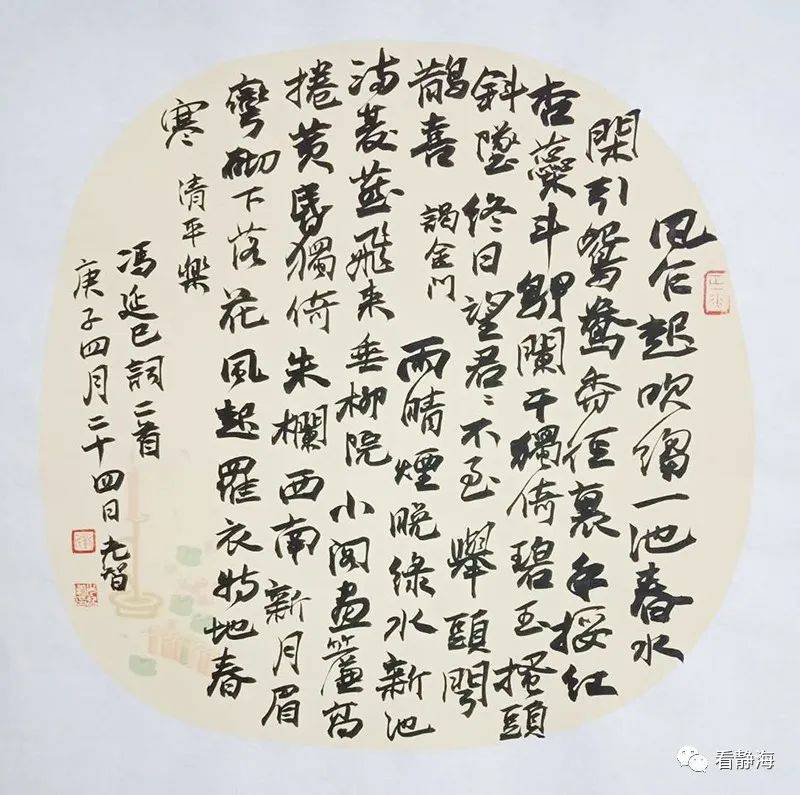 風乍起吹縐一池春水
閑引鴛鴦香徑裏手挼紅
杏蘂斗鴨闌干獨倚碧玉搔頭
斜墜終日望君〻不至舉頭聞
鵲喜 謁金門 雨晴煙晚綠水新池
滿雙燕飛來垂柳院小閣畫簾高
捲黃昏獨倚朱欄西南新月眉
彎砌下落花風起羅衣特地春
寒 清平樂
馮延巳詞二首
庚子四月二十四日
看静海